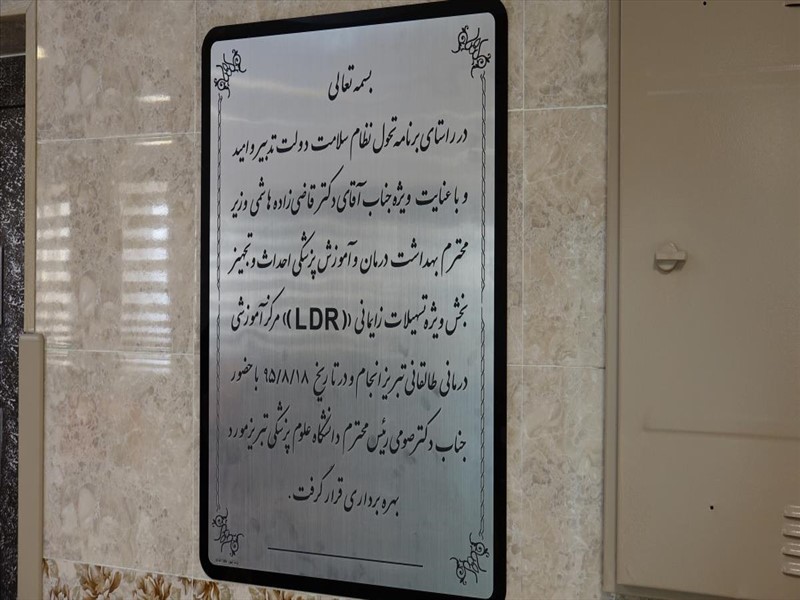 بسمه تعالی
در راستای برنامه تحول نظام سلامت دولت تدبیر و امید
و با عنایت ویژه جناب آقای دکتر قاضی زاده هاشمی وزیر
محترم بهداشت درمان و آموزش پزشکی احداث و تجهیز
بخش ویژه تسهیلات زایمانی ((LDR)) مرکز آموزشی
درمانی طالقانی تبریز انجام و در تاریخ ۹۵/۸/۱۸ با حضور
جناب دکتر صومی رئیس محترم دانشگاه علوم پزشکی تبریز مورد
بهره برداری قرار گرفت.